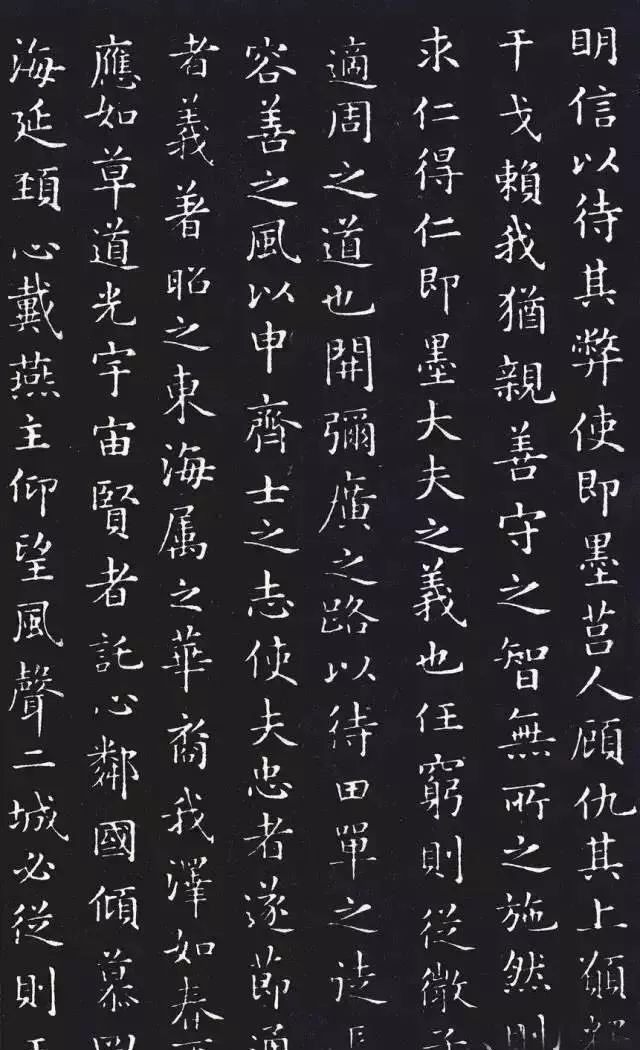 眀信以待其弊使即墨莒人顧仇其上願
干戈賴我猶親善守之智無所之施然則
求仁得仁即墨大夫之義也任窮則從微
適周之道也開彌廣之路以待田單之徒
容善之風以申齊士之志使夫忠者遂節通
者義著昭之東海属之華裔我澤如春
應如草道光宇宙賢者託心鄰國傾慕
海延頸心戴燕主仰望風聲二城必從則